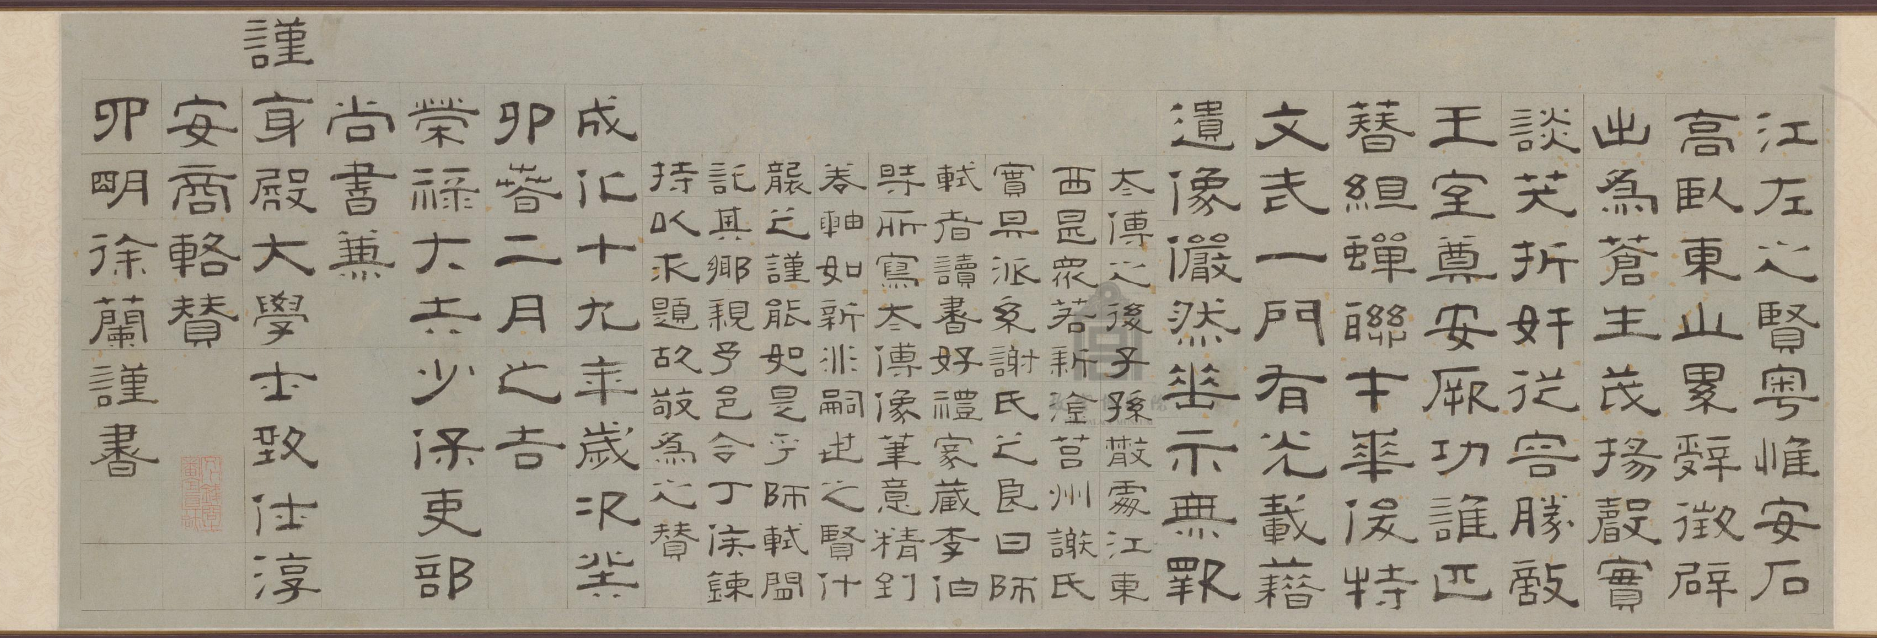 江左之賢粵惟安石
高臥東山累辭徵辟
出為蒼生茂揚聲實
談笑折奸從容勝敵
王室尊安厥功誰匹
簪組蟬聯中華後特
文武一門有光載籍
遺像儼然坐示無斁
太傅之後子孫散處江東
西是眾若新淦莒州謝氏
實是派系謝氏之良曰師
軾者讀書好禮家藏李伯
時所寫太傅像筆意精到
卷軸如新非嗣世之賢什
襲之謹能如是乎師軾閭
託其鄉親予邑令丁侯鍊
持以求題故敬為之贊
成化十九年歲次癸
卯春二月之吉
榮祿大夫少保吏部
尚書兼
謹身殿大學士致仕淳
安商輅贊
四明徐蘭謹書